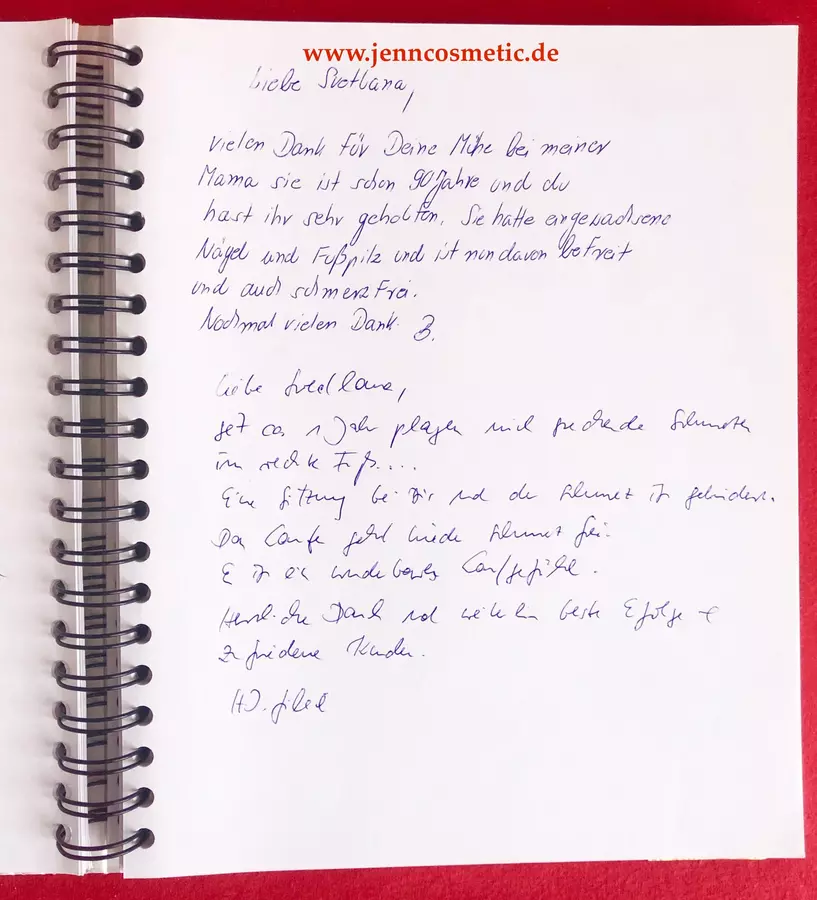 www.jenncosmetic.de
Liebe Svetlana,
vielen Dank für Deine Mühe bei meiner
Mama sie ist schon 90 Jahre und du
hast ihr sehr geholfen. Sie hatte eingewachsene
Nägel und Fußpilz und ist nun davon befreit
und auch schmerzfrei.
Nochmal vielen Dank. B.
Liebe Svedlana,
seit ca. 1 Jahr plagen mich stechende Schmerzen
im rechten Fuß....
Eine Sitzung bei Dir und der Schmerz ist gelindert.
Das Laufen geht wieder schmerzfrei.
Es ist ein wunderbares Laufgefühl.
Herzlichen Dank und weiterhin beste Erfolge +
zufriedene Kunden.